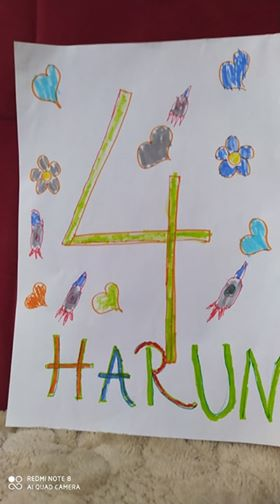 4
HARUN
REDMI NOTE 8
AI QUAD CAMERA